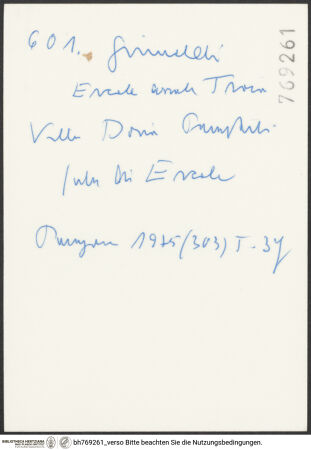 601. Grimaldi
769261
Ercole assale Troia
Villa Doria Pamphili
sala di Ercole
1975 (303) T. 37
BIBLIOTHECA HERTZIANA bh769261_verso Bitte beachten Sie die Nutzungsbedingungen.